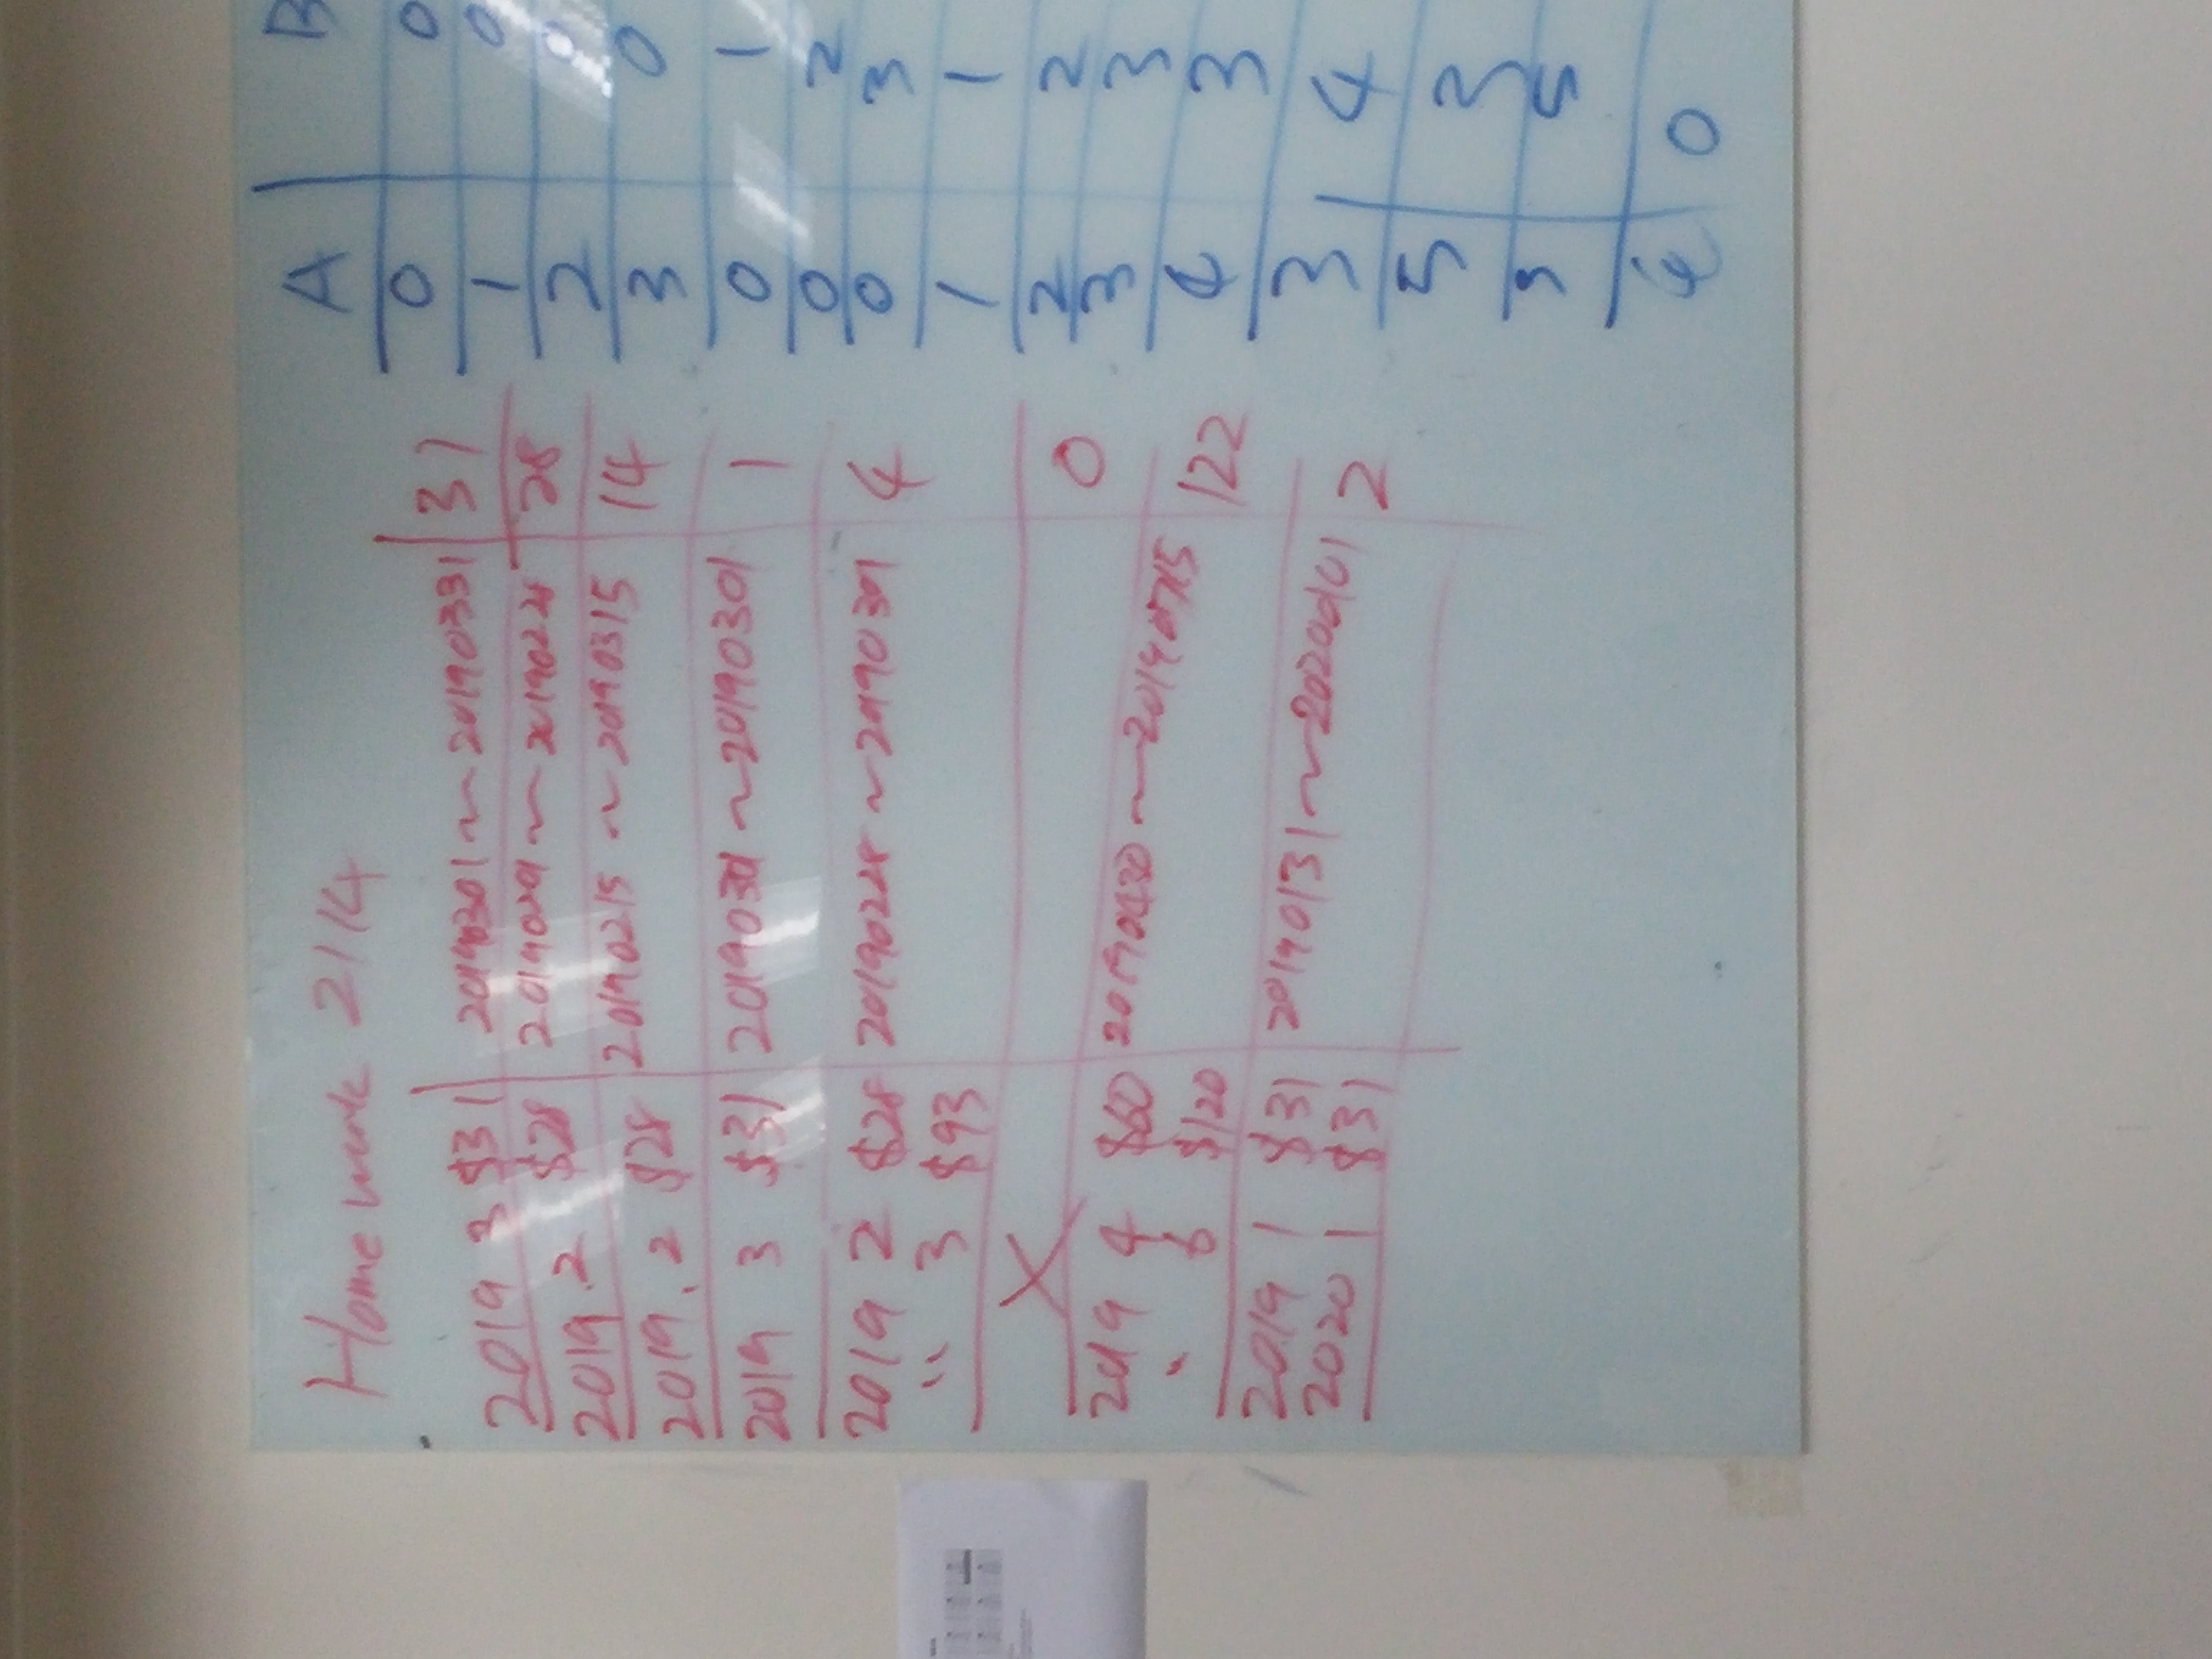 Homework 2/14
2019 3 $31 20190301 ~ 20190331 31
2019.2 $28 20190201 ~ 20190228 28
2019.2 $28 20190215 ~ 20190315 14
2019 3 $31 20190301 ~ 20190301 1
2019 2 $28 20190228 ~ 20190301 4
" 3 $93
X 0
2019 4 $60 20190430 ~ 20190715 122
" 6 $120
2019 1 $31 20190131 ~ 20200101 2
2020 1 $31
A B
0 0
1 0
2 0
3 0
0 1
0 2
0 3
1 1
2 2
3 3
4 3
3 4
5 3
3 5
4 0